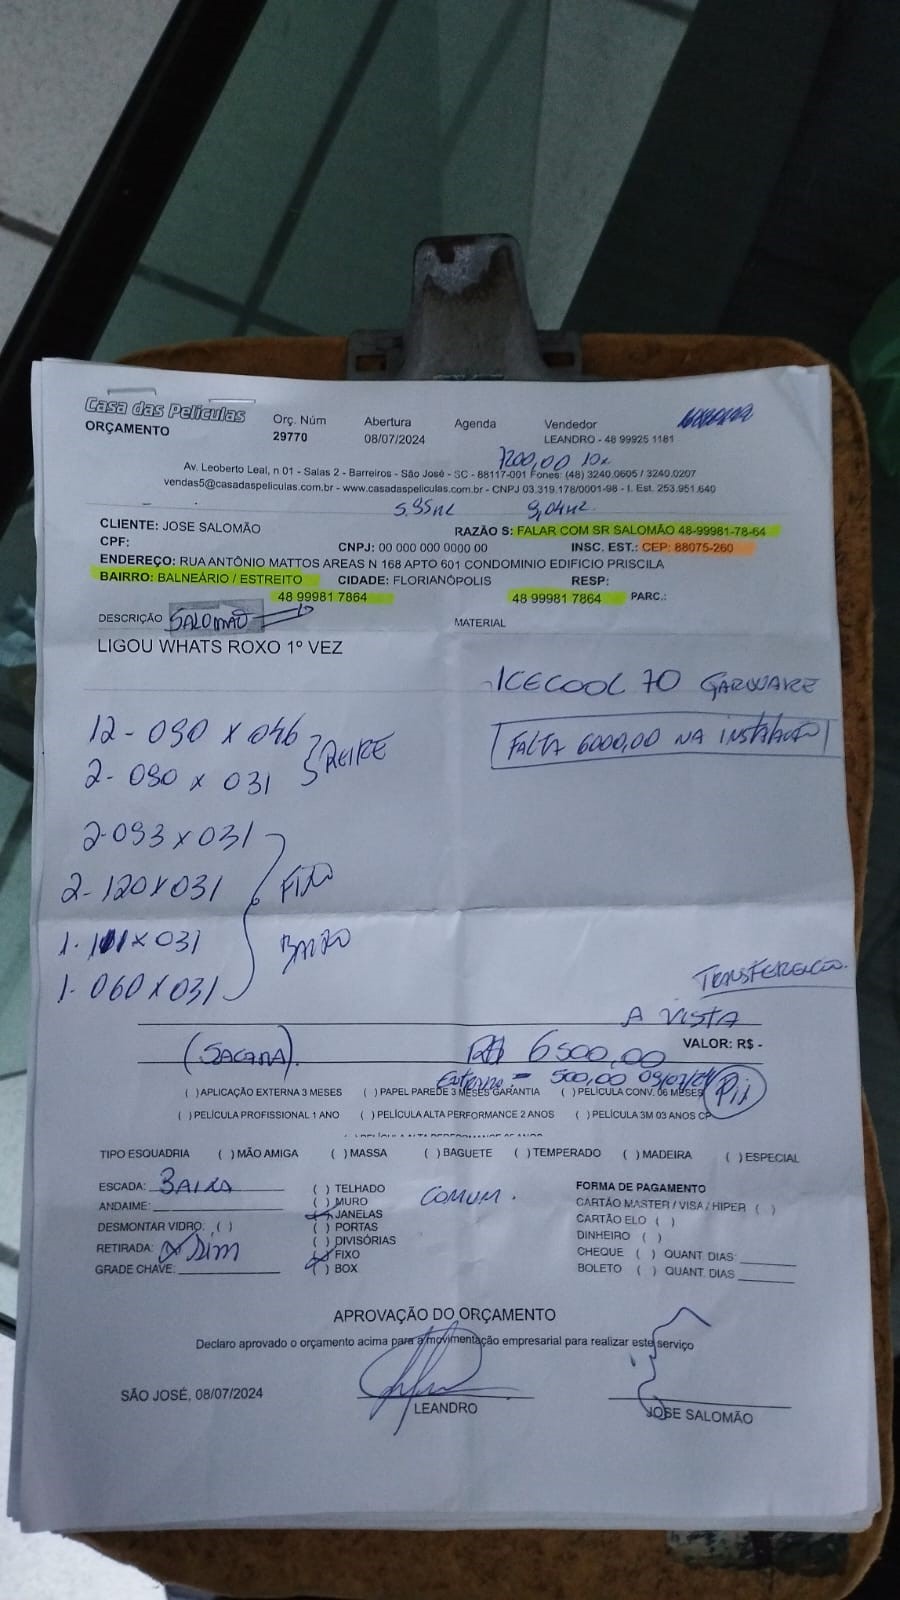 Casa das Películas
ORÇAMENTO
Orç. Núm Abertura Agenda Vendedor
29770 08/07/2024 LEANDRO - 48 99925 1181
7200,00 10x
Av. Leoberto Leal, n 01 - Salas 2 - Barreiros - São José - SC - 88117-001 Fones: (48) 3240.0605 / 3240.0207
vendas5@casadaspeliculas.com.br - www.casadaspeliculas.com.br - CNPJ 03.319.178/0001-98 - I. Est. 253.951.640
5,95M2 9,04M2
CLIENTE: JOSE SALOMÃO RAZÃO S: FALAR COM SR SALOMÃO 48-99981-78-64
CPF: CNPJ: 00 000 000 0000 00 INSC. EST.: CEP: 88075-260
ENDEREÇO: RUA ANTÔNIO MATTOS AREAS N 168 APTO 601 CONDOMINIO EDIFICIO PRISCILA
BAIRRO: BALNEÁRIO / ESTREITO CIDADE: FLORIANÓPOLIS RESP:
48 99981 7864 48 99981 7864 PARC.:
DESCRIÇÃO SALOMÃO MATERIAL
LIGOU WHATS ROXO 1º VEZ
ICECOOL 70 GARWARE
12- 090 X 046
FALTA 6000,00 NA INSTALAÇÃO
2- 090 X 031
2-093 X 031
2- 120 X 031 FIXO
1- 101 X 031 BAIXO
1- 060 X 031
TRANSFERENCIA.
A VISTA
(SACADA). R$ 6500,00 VALOR: R$ -
Entrada = 500,00 09/07/24 Pix
( ) APLICAÇÃO EXTERNA 3 MESES ( ) PAPEL PAREDE 3 MESES GARANTIA ( ) PELÍCULA CONV. 06 MESES
( ) PELÍCULA PROFISSIONAL 1 ANO ( ) PELÍCULA ALTA PERFORMANCE 2 ANOS ( ) PELÍCULA 3M 03 ANOS CP
TIPO ESQUADRIA ( ) MÃO AMIGA ( ) MASSA ( ) BAGUETE ( ) TEMPERADO ( ) MADEIRA ( ) ESPECIAL
ESCADA: BAIXA ( ) TELHADO COMUM. FORMA DE PAGAMENTO
ANDAIME: ( ) MURO CARTÃO MASTER / VISA / HIPER ( )
(X) JANELAS
DESMONTAR VIDRO: ( ) ( ) PORTAS CARTÃO ELO ( )
( ) DIVISÓRIAS DINHEIRO ( )
RETIRADA: (X) Sim (X) FIXO CHEQUE ( ) QUANT. DIAS:
GRADE CHAVE: ( ) BOX BOLETO ( ) QUANT. DIAS
APROVAÇÃO DO ORÇAMENTO
Declaro aprovado o orçamento acima para a movimentação empresarial para realizar este serviço
SÃO JOSÉ, 08/07/2024
LEANDRO JOSE SALOMÃO